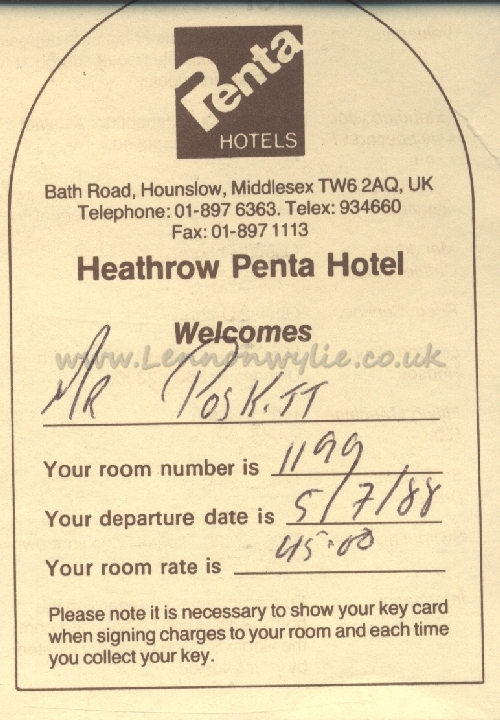 Penta
HOTELS
Bath Road, Hounslow, Middlesex TW6 2AQ, UK
Telephone: 01-897 6363. Telex: 934660
Fax: 01-897 1113
Heathrow Penta Hotel
Welcomes
www.Lennonwylie.co.uk
MR Poskitt
Your room number is 1199
Your departure date is 5/7/88
Your room rate is 45.00
Please note it is necessary to show your key card
when signing charges to your room and each time
you collect your key.